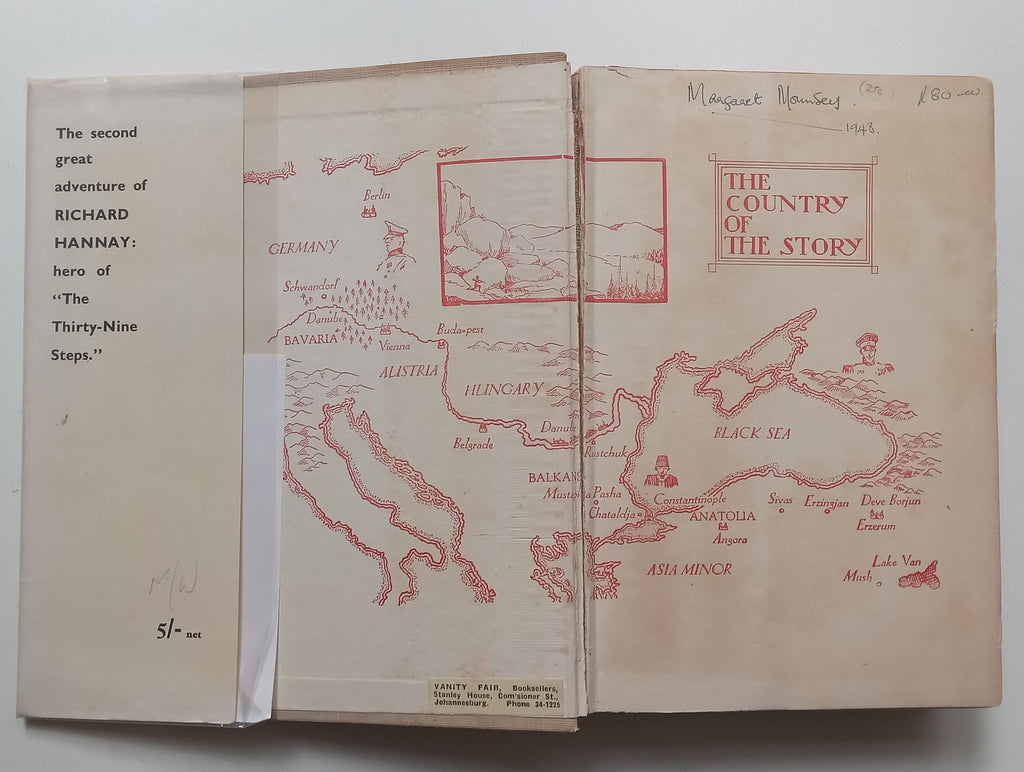 The second
great
adventure of
RICHARD
HANNAY:
hero of
“The
Thirty-Nine
Steps.”
M/W
5/- net
Berlin
GERMANY
Schwandorf
Danube
BAVARIA
Vienna
Buda-pest
AUSTRIA
HUNGARY
Danube
Belgrade
Rustchuk
BALKANS
Mustapha Pasha
Chataldja
VANITY FAIR, Booksellers,
Stanley House, Com'sioner St.,
Johannesburg. Phone 34-1225
Margaret Mounsey.
1948.
R80-00
THE
COUNTRY
OF
THE STORY
BLACK SEA
Constantinople
Sivas
Erzingjan
Deve Borjun
ANATOLIA
Erzerum
Angora
ASIA MINOR
Lake Van
Mush